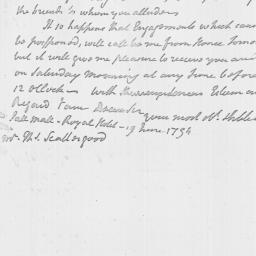 the friends to whom you allude.
It so happens that Engagements which cannot
be postponed, will call me from Home tomo
but it will give me pleasure to receive you
on Saturday Morning at any time before
12 oClock — With
Regard I am Dear Sir
your most Ob.
Pall Mall - Royal Hotel - 19 June 1794
Mr. Th. Scattergood